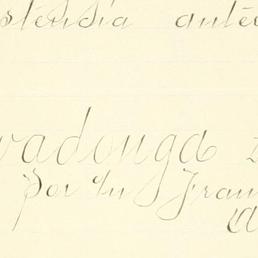 stensia ante
vadonga
por su Fran